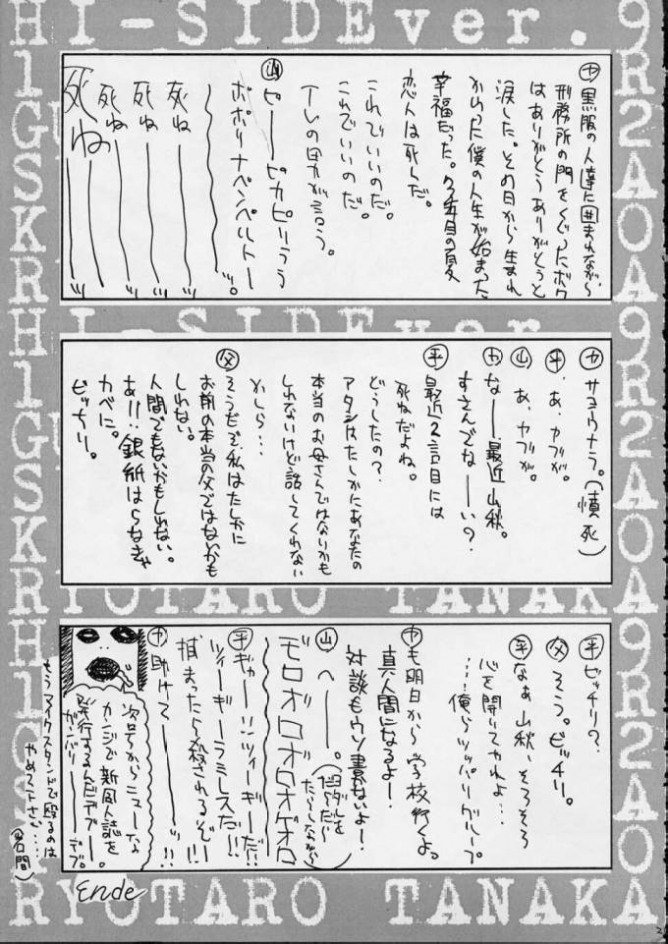 HI-SIDEver.
㋳ 黒服の人達に囲まれながら
刑務所の門をくぐったボク
はありがとうありがとうと
涙した。その日から生まれ
かわった僕の人生が始まった
幸福だった。
恋人は死んだ。
これでいいのだ。
これでいいのだ。
㊤ ピーーピカピリうう
ポポリナペンペルトー
死ね
死ね
死ね
死ね
HI-SIDEver.
サヨウナラ。(憤死)
㋵ あ、ヤブが。
㊤ あ、ヤブが。
なー最近山秋。
すさんでなーい?
㊤ 最近2言目には
死ねだよね。
どうしたの?
アタシはたしかにあなたの
本当のお母さんではないかも
しれないけど話してくれない
かしら…
㊛ そうだぞ私はたしかに
お前の本当の父ではないかも
しれない。
人間でもないかもしれない。
あ!!:銀紙はらなきゃ
カベに。
ビッチリ。
RYOTARO TANAKA
ビッチリ?
そう。ビッチリ。
なぁ山秋、そろそろ
心を開いてやれよ…
……俺らツッパリグループ
も明日から学校行くよ。
真人間になるよー!
対談もウソ書かないよー!
へーー。
モロオロオロオゲロ
ギャー!!ツィーギーだ!!
ツィーギーラミレスだ!!
捕まったら殺されるぞー!!
助けてーーッ!!
次号からニューな
カンジで新同人誌を
発行するんだデブー。
ガンバリーデブ。
もうマイクスタンドで殴るのは
やめて下さい…
(岩間)
Ende
RYOTARO TANAKA